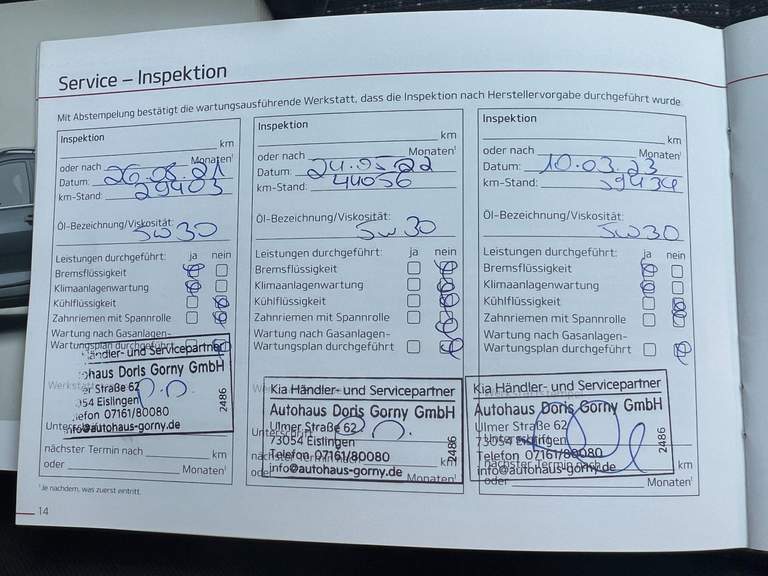 Service – Inspektion
Mit Abstempelung bestätigt die wartungsausführende Werkstatt, dass die Inspektion nach Herstellervorgabe durchgeführt wurde.
Inspektion
km
oder nach Monaten¹
Datum: 26.08.21
km-Stand: 29403
Öl-Bezeichnung/Viskosität:
5W30
Leistungen durchgeführt: ja nein
Bremsflüssigkeit
Klimaanlagenwartung
Kühlflüssigkeit
Zahnriemen mit Spannrolle
Wartung nach Gasanlagen-
Wartungsplan durchgeführt
ändler- und Servicepartner
ohaus Doris Gorny GmbH
er Straße 62
054 Eislingen
efon 07161/80080
info@autohaus-gorny.de
2486
nächster Termin nach km
oder Monaten¹
Inspektion
km
oder nach Monaten¹
Datum: 24.05.22
km-Stand: 44056
Öl-Bezeichnung/Viskosität:
5W30
Leistungen durchgeführt: ja nein
Bremsflüssigkeit
Klimaanlagenwartung
Kühlflüssigkeit
Zahnriemen mit Spannrolle
Wartung nach Gasanlagen-
Wartungsplan durchgeführt
Kia Händler- und Servicepartner
Autohaus Doris Gorny GmbH
Ulmer Straße 62
73054 Eislingen
Telefon 07161/80080
info@autohaus-gorny.de
2486
km
oder Monaten¹
Inspektion
km
oder nach Monaten¹
Datum: 10.03.23
km-Stand: 59434
Öl-Bezeichnung/Viskosität:
5W30
Leistungen durchgeführt: ja nein
Bremsflüssigkeit
Klimaanlagenwartung
Kühlflüssigkeit
Zahnriemen mit Spannrolle
Wartung nach Gasanlagen-
Wartungsplan durchgeführt
Kia Händler- und Servicepartner
Autohaus Doris Gorny GmbH
Ulmer Straße 62
73054 Eislingen
Telefon 07161/80080
info@autohaus-gorny.de
2486
nächster Termin nach km
oder Monaten¹
¹ Je nachdem, was zuerst eintritt.
14